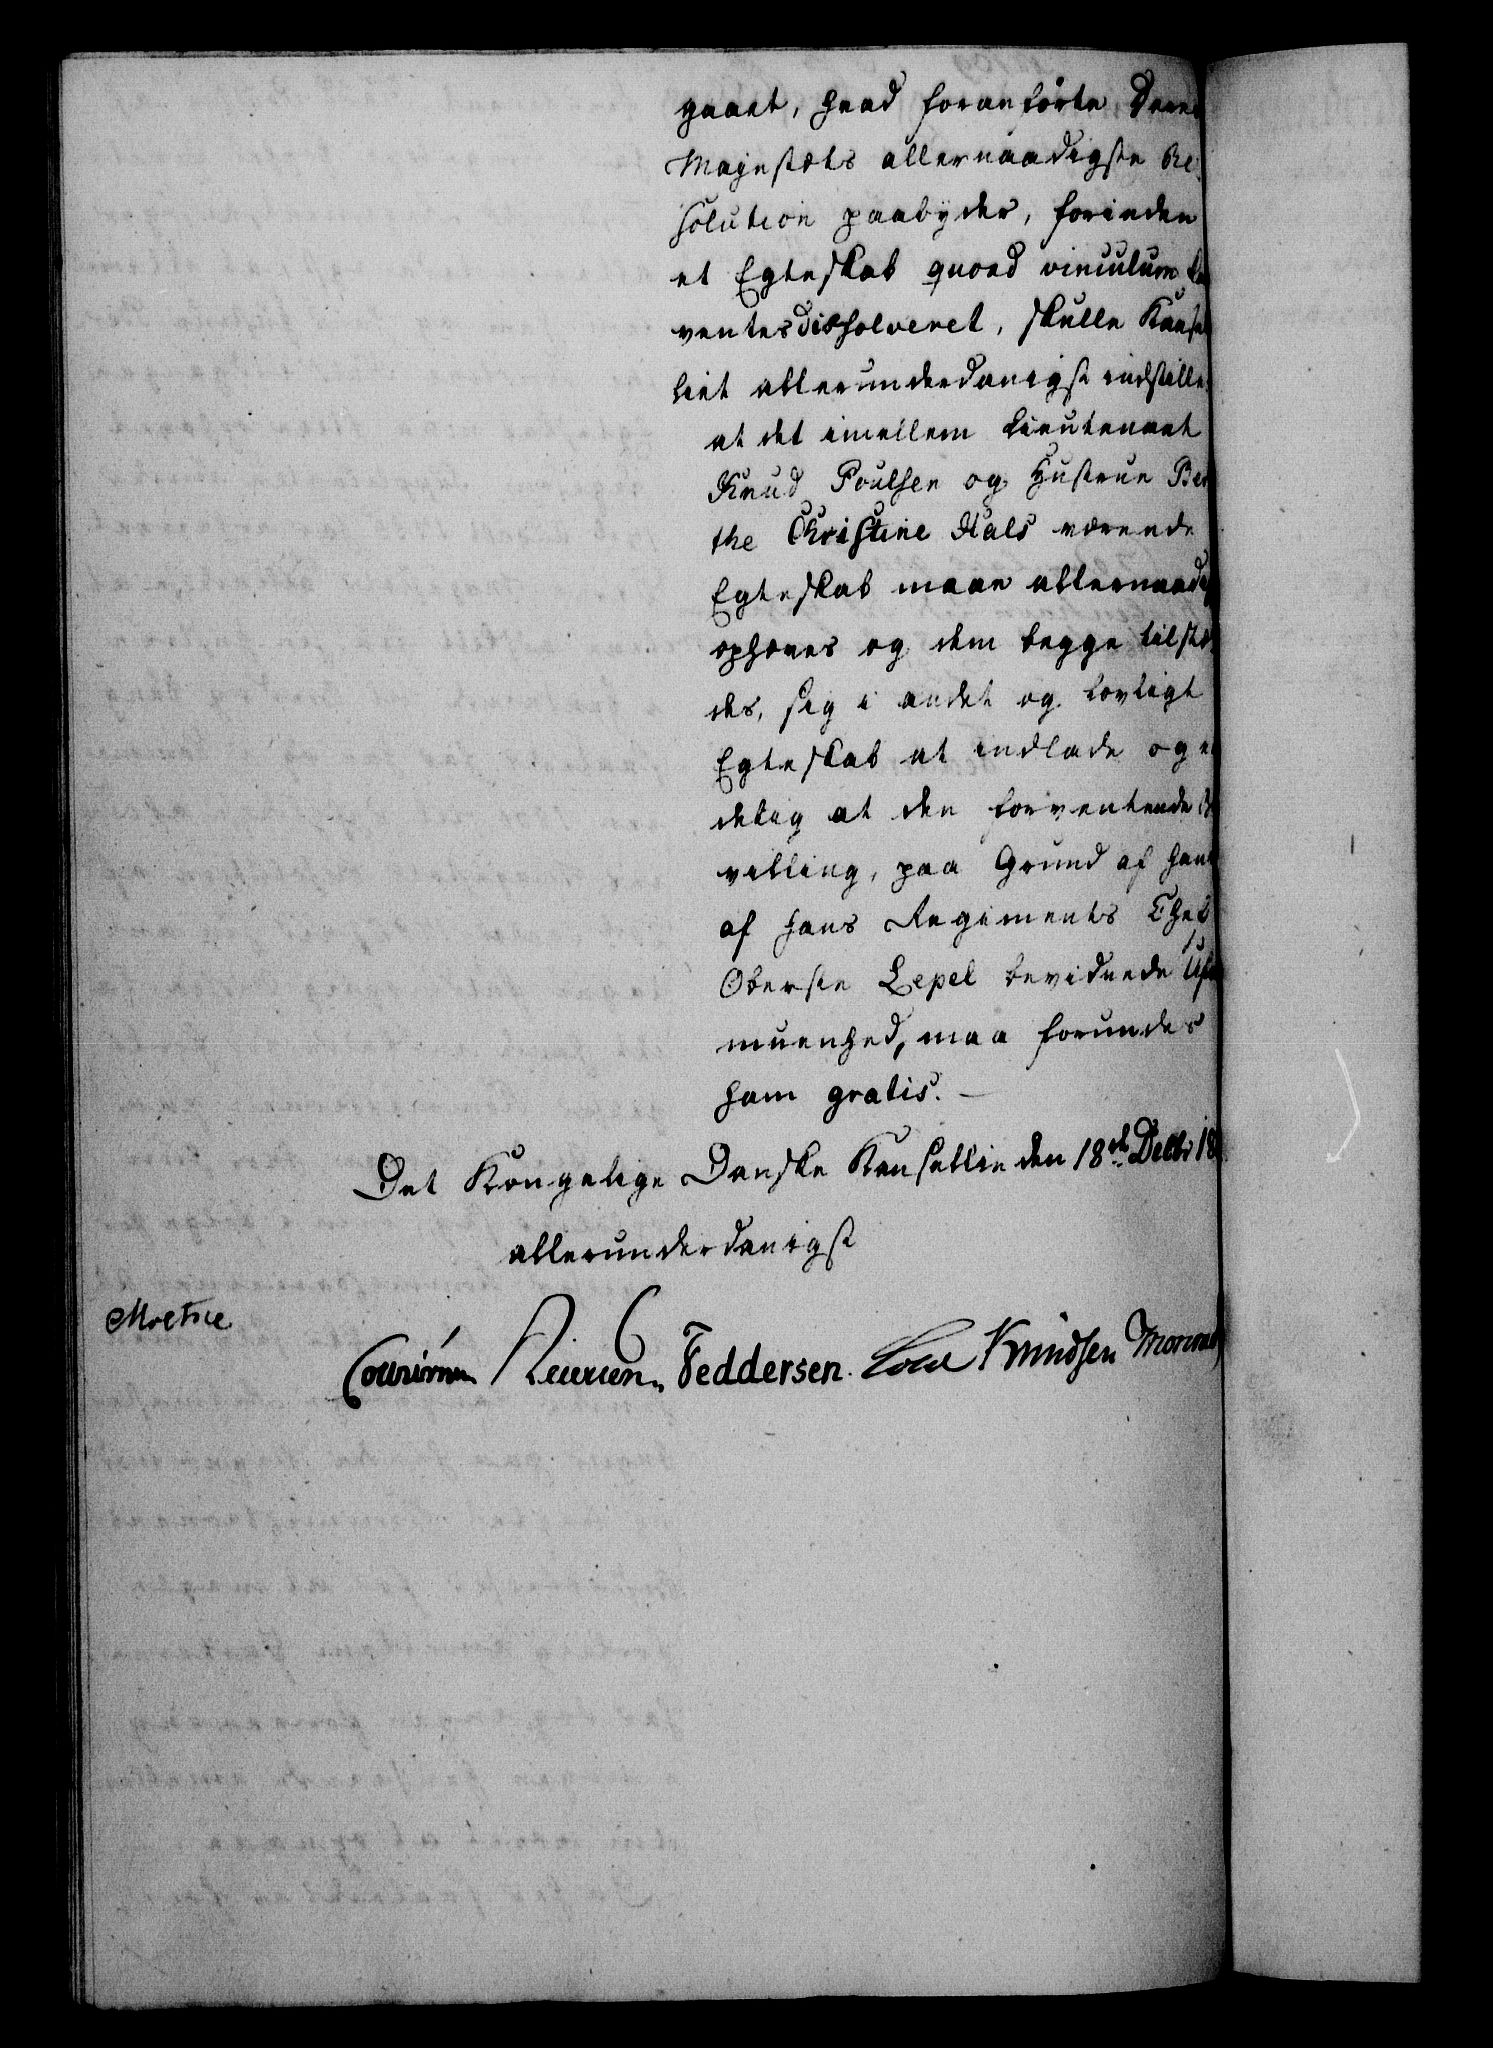 gaaet, hvad foranførte Deres
Majestæts allernaadigste Re-
solution paabyder, forinden
et Egteskab quoad vinculum
ventes dissolveret, skulle Kansel
liet allerunderdanigst indstille
at det imellem Lieutenant
Knud Poulsen og Hustrue Ber
the Christine Hals værende
Egteskab maae allernaadigst
ophæves og dem begge tilste
des, sig i andet og lovligt
Egteskab at indlade og en
delig at den forventende Be
villing, paa Grund af hans
af hans Regiments Chef
Oberste Lepel bevidnede Ufor
muenhed, maa forundes
ham gratis. —
Det Kongelige Danske Kanselllie den 18de Decbr 18
allerunderdanigst
Moltke
Feddersen. Knudsen Monrad